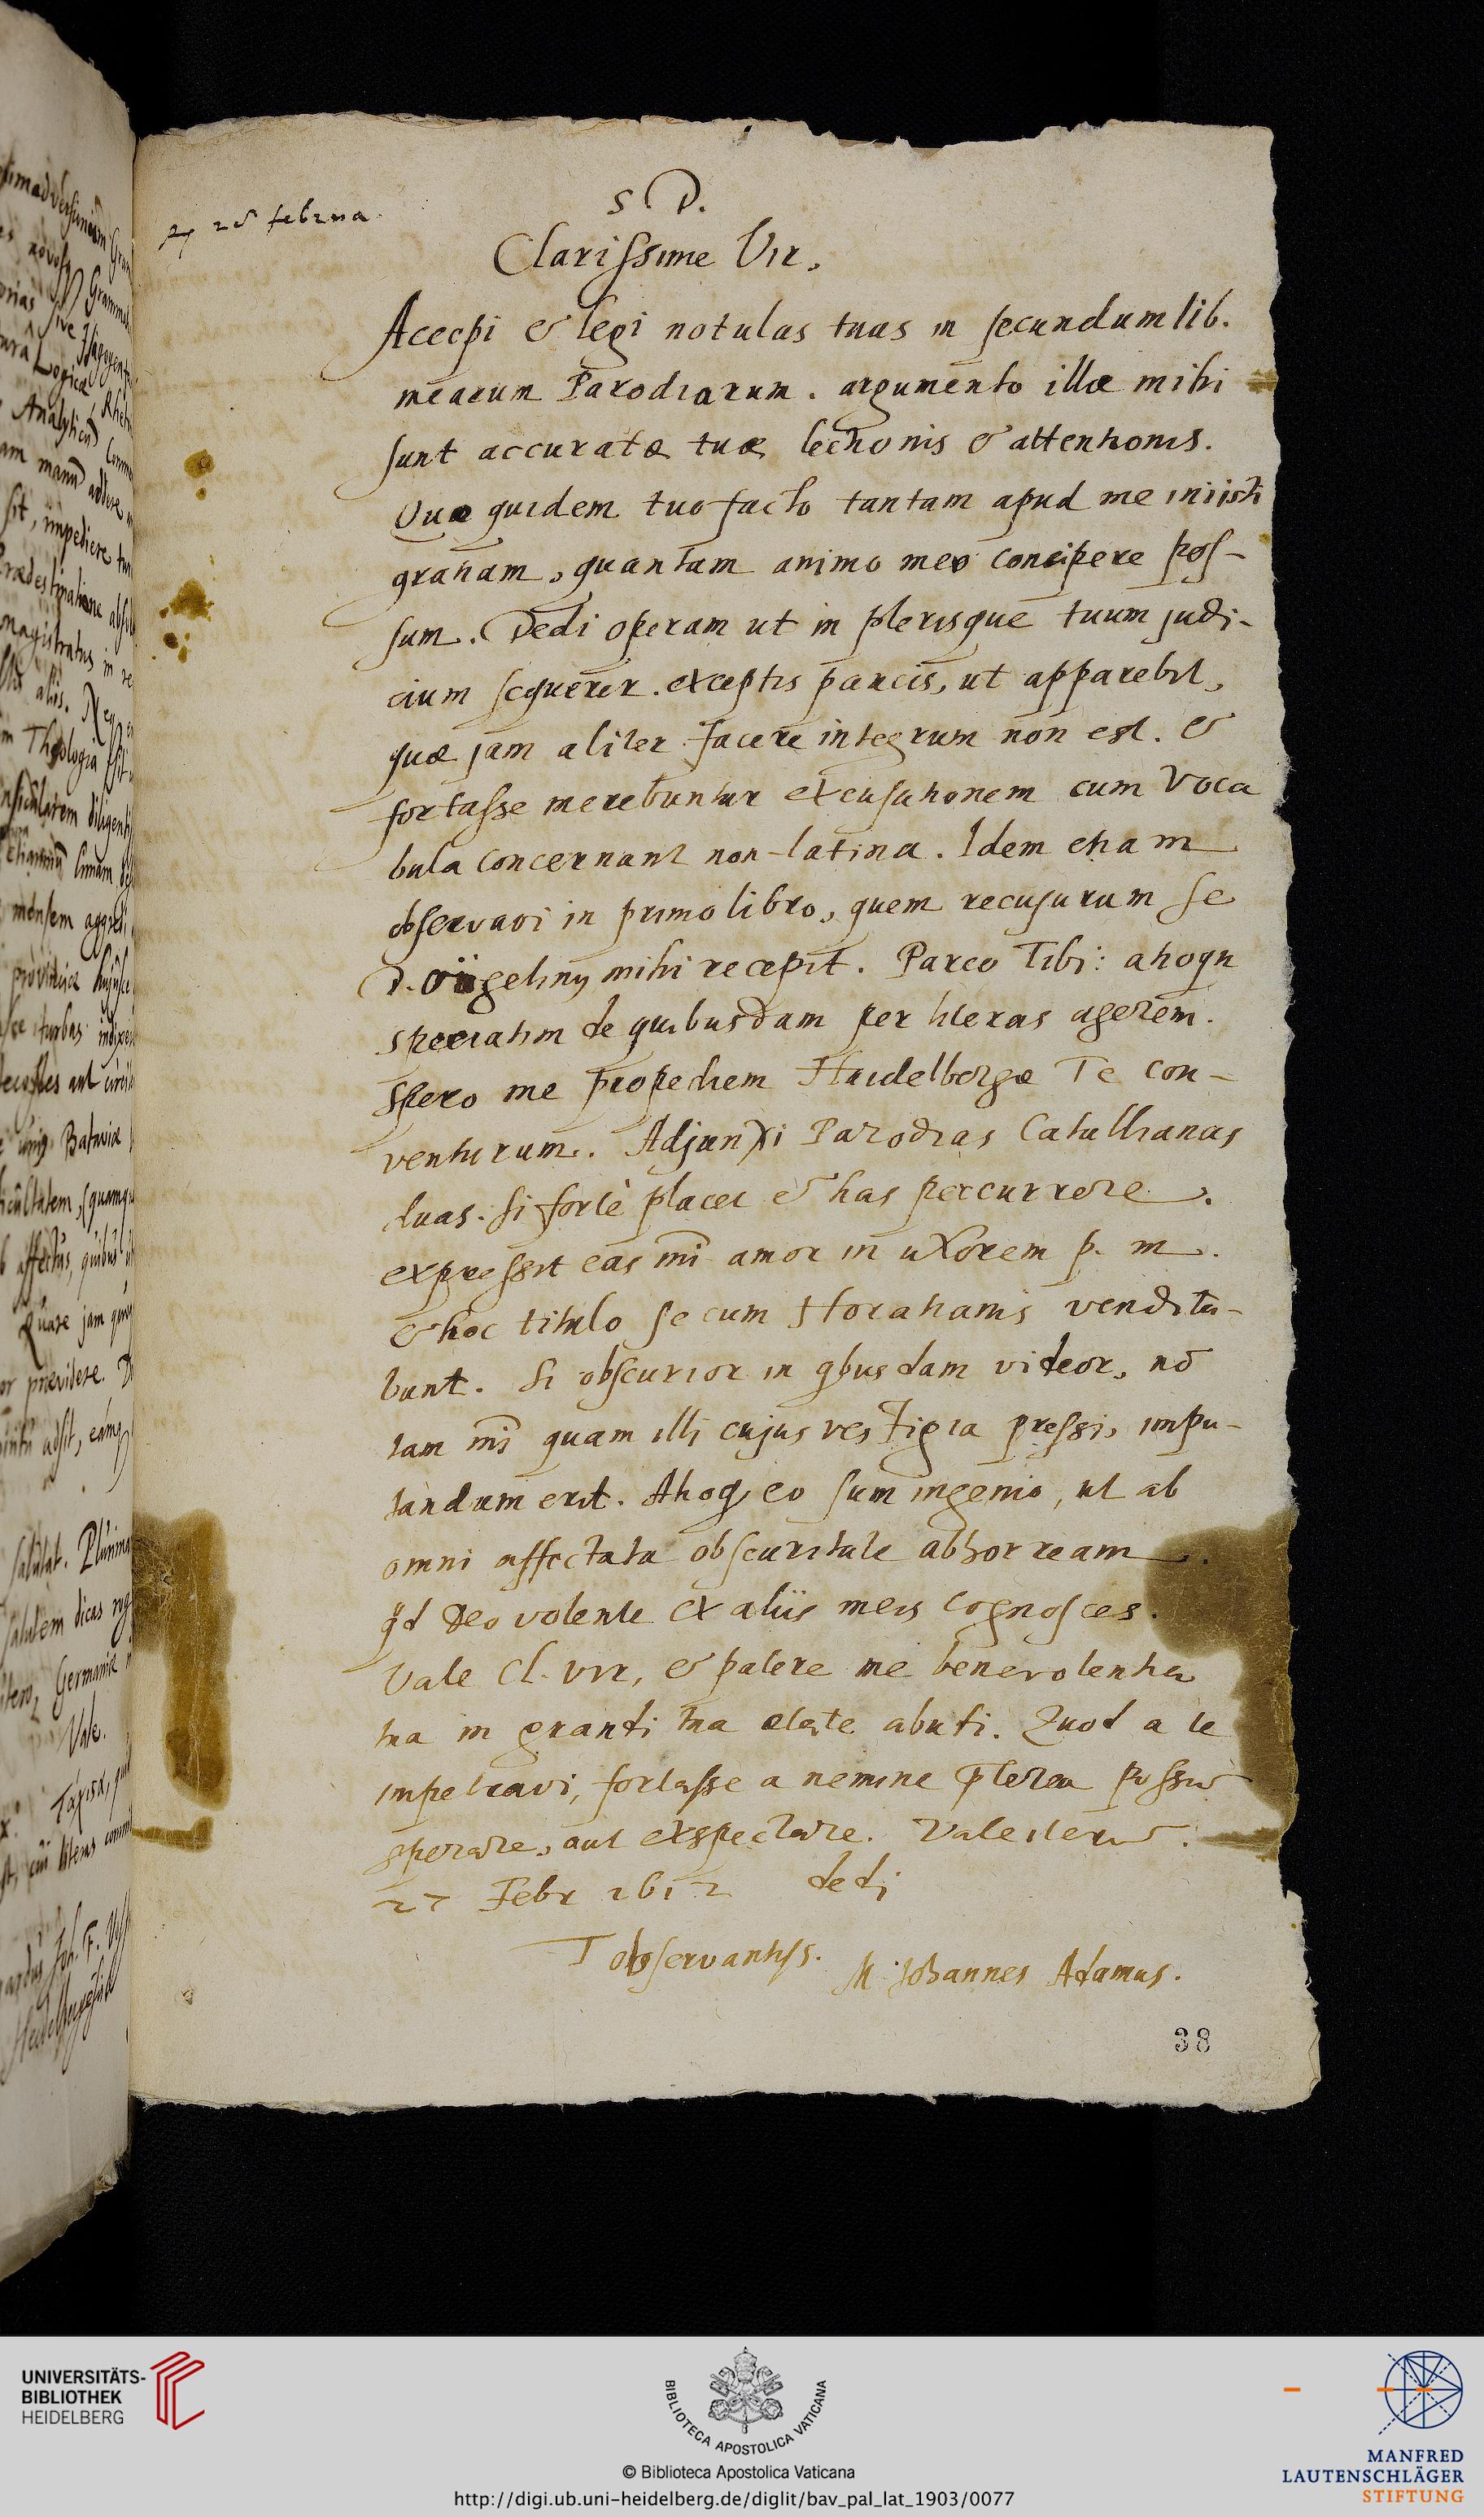 S D.
28 februa.
Clarissime Vir,
Accepi & legi notulas tuas in secundum lib.
mearum Parodiarum. argumento illæ mihi
sunt accuratæ tuæ lectionis & attentionis.
Quæ quidem tuo facto tantam apud me iniisti
gratiam, quantam animo meo concipere pos-
sum. Dedi operam ut in plerisque tuum judi-
cium sequerer. exceptis paucis, ut apparebit,
quæ jam aliter facere integrum non est. &
fortasse merebuntur excusationem cum voca
bula concernant non-latina. Idem etiam
observavi in primo libro, quem recusurum se
D. mihi recepit. Parco Tibi: alioqn
speciatim de quibusdam per literas agerem.
Spero me propediem Haidelbergæ Te con-
venturum. Adjunxi Parodias Catullianas
duas. si fortè placet & has percurrere.
expressit eas mī amor in uxorem p. m.
& hoc titulo se cum Horatianis vendita-
bunt. Si obscurior in qbusdam videor, nō
tam mī quam illi cujus vestigia pressi, impu-
tandum erit. Alioq eo sum ingenio, ut ab
omni affectata obscuritate abhorream.
qd Deo volente ex aliis meis cognosces.
Vale Cl. Vir, & patere me benevolentia
tua in grandi tua ætate abuti. Quod a te
impetravi, fortasse a nemine pterea possū
sperare, aut exspectare. Vale iterū.
27 Febr 1612 dedi
T observantiss. M. Johannes Adamus.
38
UNIVERSITÄTS-
BIBLIOTHEK
HEIDELBERG
BIBLIOTECA APOSTOLICA VATICANA
© Biblioteca Apostolica Vaticana
http://digi.ub.uni-heidelberg.de/diglit/bav_pal_lat_1903/0077
MANFRED
LAUTENSCHLÄGER
STIFTUNG